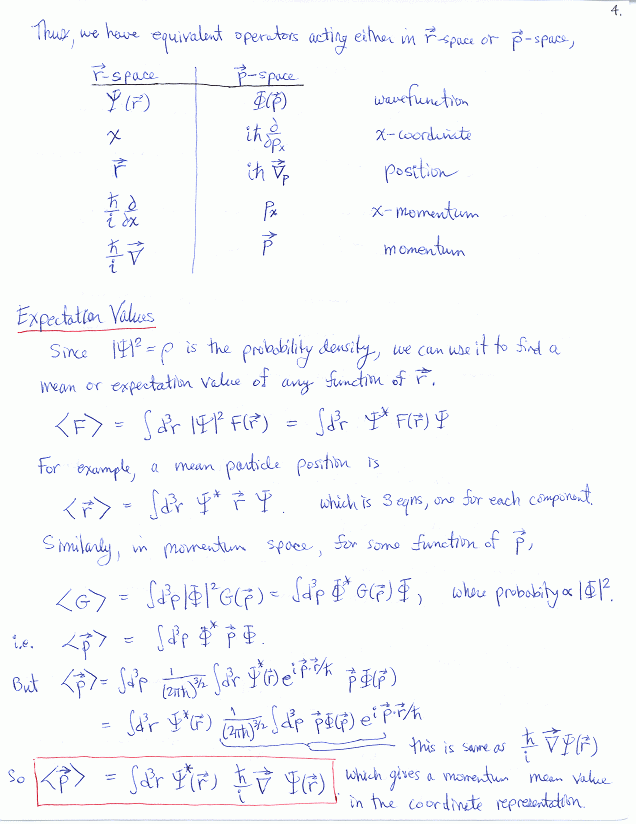 4.
Thus, we have equivalent operators acting either in r⃗-space or p⃗-space,
r⃗-space p⃗-space
Ψ(r⃗) Φ(p⃗) wavefunction
x iħ ∂/∂pₓ x-coordinate
r⃗ iħ ∇⃗ₚ position
ħ/i ∂/∂x pₓ x-momentum
ħ/i ∇⃗ p⃗ momentum
Expectation Values
Since |Ψ|² = ρ is the probability density, we can use it to find a
mean or expectation value of any function of r⃗.
<F> = ∫d³r |Ψ|² F(r⃗) = ∫d³r Ψ* F(r⃗) Ψ
For example, a mean particle position is
<r⃗> = ∫d³r Ψ* r⃗ Ψ. which is 3 eqns, one for each component.
Similarly, in momentum space, for some function of p⃗,
<G> = ∫d³p |Φ|² G(p⃗) = ∫d³p Φ* G(p⃗) Φ, where probability ∝ |Φ|².
i.e. <p⃗> = ∫d³p Φ* p⃗ Φ.
But <p⃗> = ∫d³p 1/(2πħ)^{3/2} ∫d³r Ψ*(r⃗) e^{i p⃗·r⃗/ħ} p⃗ Φ(p⃗)
= ∫d³r Ψ*(r⃗) 1/(2πħ)^{3/2} ∫d³p p⃗ Φ(p⃗) e^{i p⃗·r⃗/ħ}
this is same as ħ/i ∇⃗ Ψ(r⃗)
So <p⃗> = ∫d³r Ψ*(r⃗) ħ/i ∇⃗ Ψ(r⃗) which gives a momentum mean value
in the coordinate representation.